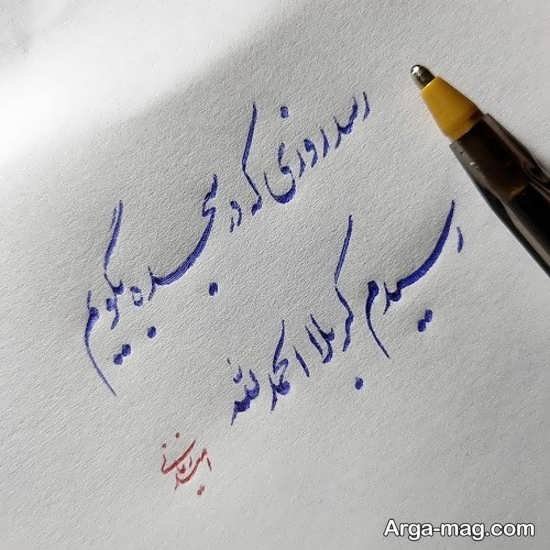 رسد روزی که در سجده بگویم
رسیدم کربلا الحمدلله
Arga-mag.com